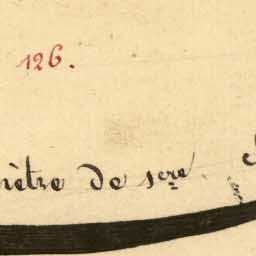 126.
mètre de sere